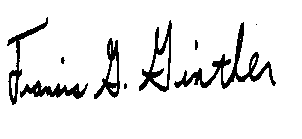 Francis G. Gintler